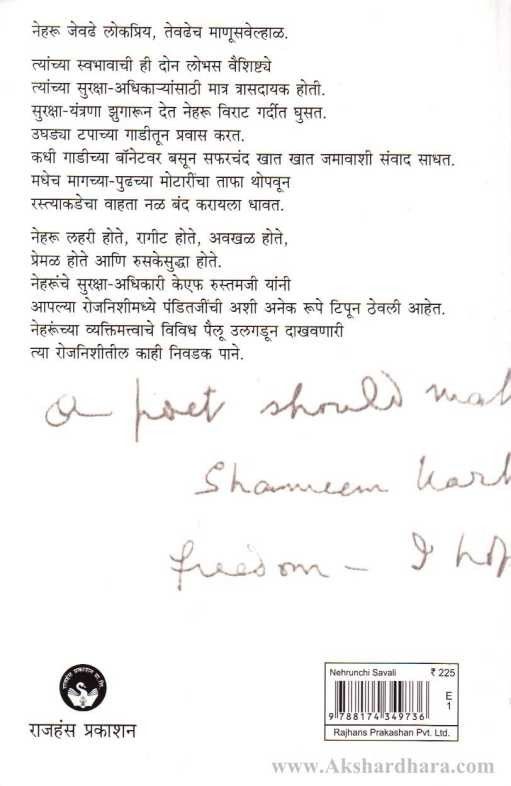 नेहरू जेवढे लोकप्रिय, तेवढेच माणूसवेल्हाळ.
त्यांच्या स्वभावाची ही दोन लोभस वैशिष्ट्ये
त्यांच्या सुरक्षा-अधिकाऱ्यांसाठी मात्र त्रासदायक होती.
सुरक्षा-यंत्रणा झुगारून देत नेहरू विराट गर्दीत घुसत.
उघड्या टपाच्या गाडीतून प्रवास करत.
कधी गाडीच्या बॉनेटवर बसून सफरचंद खात खात जमावाशी संवाद साधत.
मधेच मागच्या-पुढच्या मोटारींचा ताफा थोपवून
रस्त्याकडेचा वाहता नळ बंद करायला धावत.
नेहरू लहरी होते, रागीट होते, अवखळ होते,
प्रेमळ होते आणि रुसकेसुद्धा होते.
नेहरूंचे सुरक्षा-अधिकारी केएफ रुस्तमजी यांनी
आपल्या रोजनिशीमध्ये पंडितजींची अशी अनेक रूपे टिपून ठेवली आहेत.
नेहरूंच्या व्यक्तिमत्त्वाचे विविध पैलू उलगडून दाखवणारी
त्या रोजनिशीतील काही निवडक पाने.
a poet should mak
Shameem Karh
freedom – I hop
राजहंस प्रकाशन प्रा. लि.
राजहंस प्रकाशन
Nehrunchi Savali ₹ 225
E
1
9 788174 349736
Rajhans Prakashan Pvt. Ltd.
www.Akshardhara.com